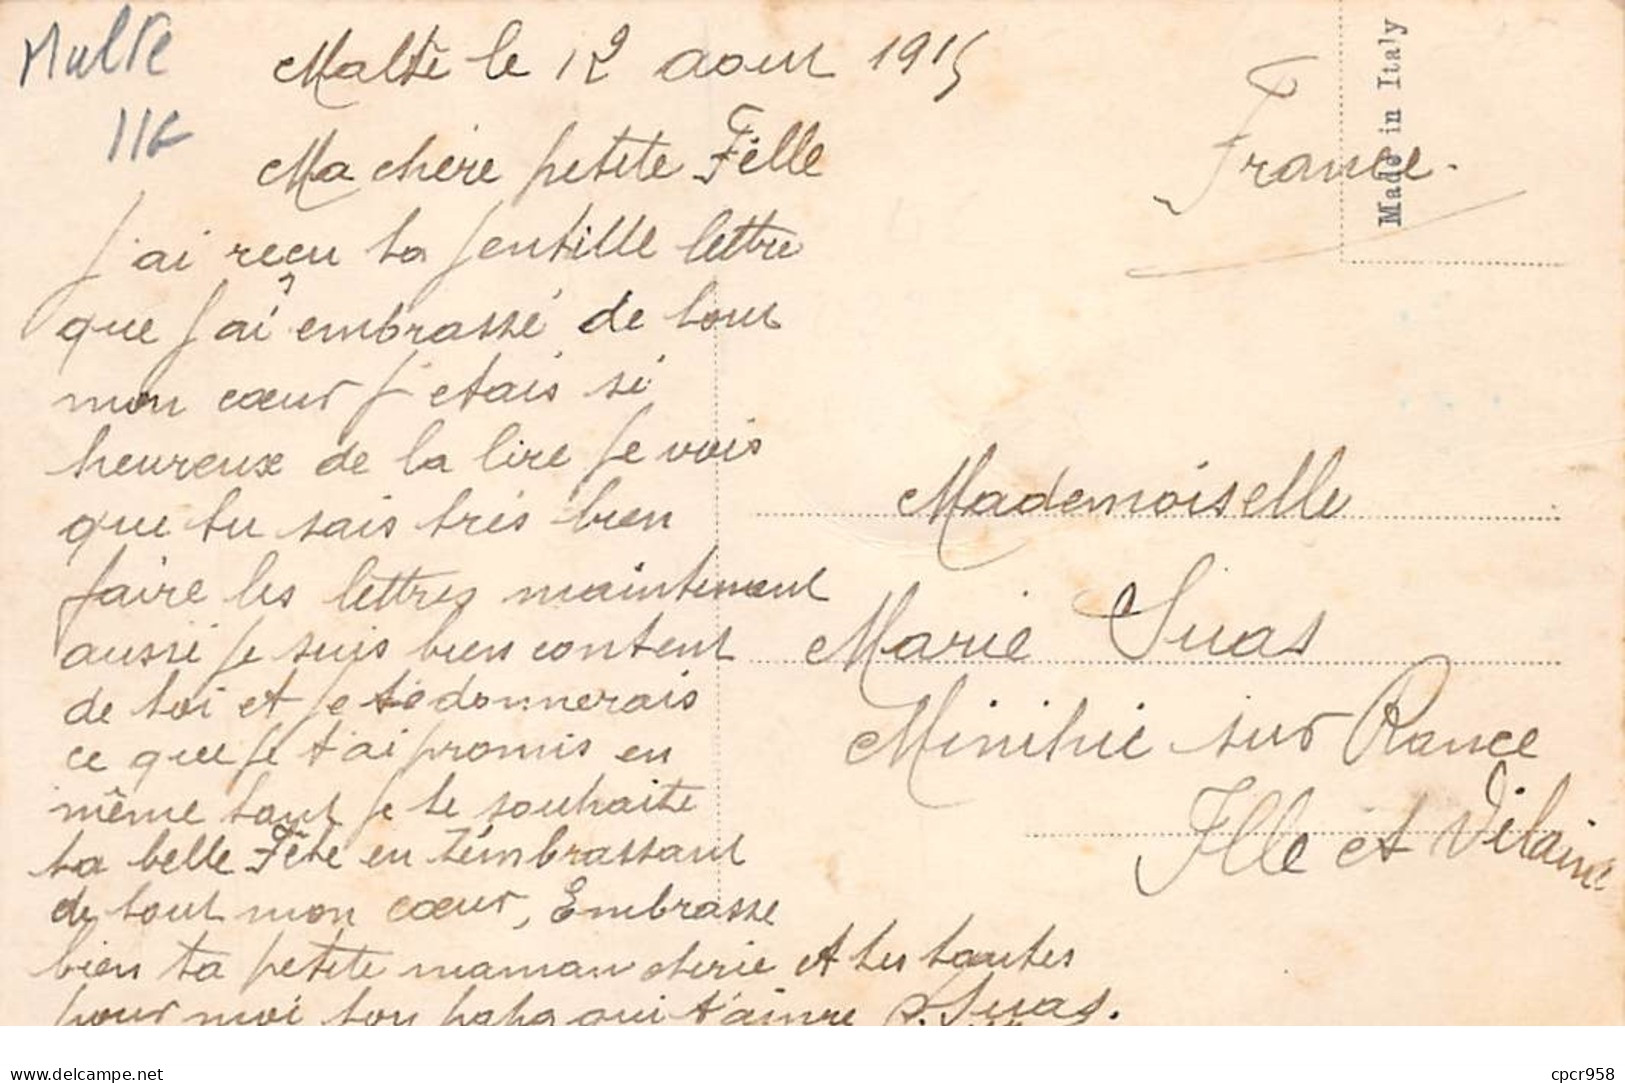 Malte
116
Malte le 12 aout 1915
Ma chère petite Fille
j'ai reçu ta jentille lettre
que j'ai embrassé de tout
mon cœur j'etais si
heureux de la lire je vois
que tu sais très bien
faire les lettres maintenant
aussi je suis bien content
de toi et je te donnerais
ce que je t'ai promis en
même tant je te souhaite
ta belle Fête en t'émbrassant
de tout mon cœur, Embrasse
bien ta petite maman cherie et tes tantes
pour moi ton papa qui t'aime Suas.
France.
Made in Italy
Mademoiselle
Marie Suas
Minihic sur Rance
Ille et Vilaine
www.delcampe.net
cpcr958